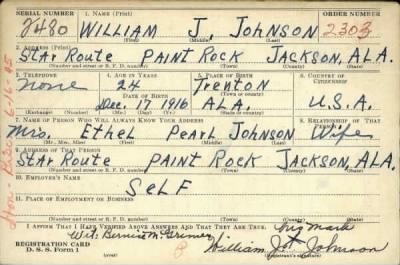 SERIAL NUMBER 1. NAME (Print) ORDER NUMBER
2480 WILLIAM J. JOHNSON 2303
(First) (Middle) (Last)
2. ADDRESS (Print)
Star Route PAINT ROCK JACKSON, ALA.
(Number and street or R. F. D. number) (Town) (County) (State)
3. TELEPHONE 4. AGE IN YEARS 5. PLACE OF BIRTH 6. COUNTRY OF CITIZENSHIP
None 24 Trenton
DATE OF BIRTH (Town or county)
Dec. 17 1916 ALA. U.S.A.
(Exchange) (Number) (Mo.) (Day) (Yr.) (State or country)
7. NAME OF PERSON WHO WILL ALWAYS KNOW YOUR ADDRESS 8. RELATIONSHIP OF THAT PERSON
Mrs. Ethel Pearl Johnson Wife
(Mr., Mrs., Miss) (First) (Middle) (Last)
9. ADDRESS OF THAT PERSON
Star Route PAINT ROCK JACKSON, ALA.
(Number and street or R. F. D. number) (Town) (County) (State)
10. EMPLOYER'S NAME
SELF
11. PLACE OF EMPLOYMENT OR BUSINESS
(Number and street or R. F. D. number) (Town) (County) (State)
I AFFIRM THAT I HAVE VERIFIED ABOVE ANSWERS AND THAT THEY ARE TRUE. his mark
Wit. Bernice M.
REGISTRATION CARD
D. S. S. Form 1 William J. Johnson
6-16-45